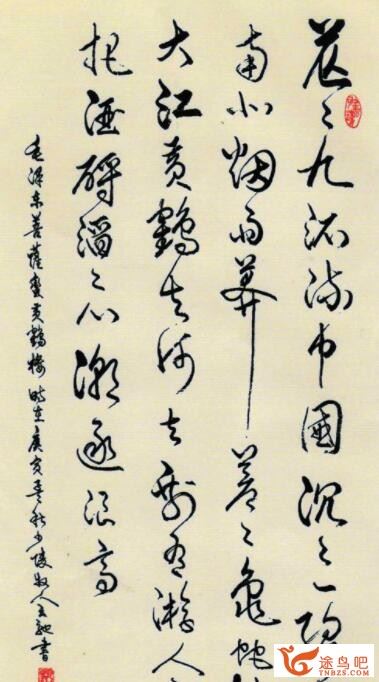 茫〻九派流中國沉〻一
南北烟雨莽蒼〻龜蛇
大江黄鶴知何去剩有遊人
把酒酹滔〻心潮逐浪高
毛澤東菩薩蠻黄鶴樓 時在庚寅孟秋少陵牧人王馳書
途鸟吧
TNBZS.COM